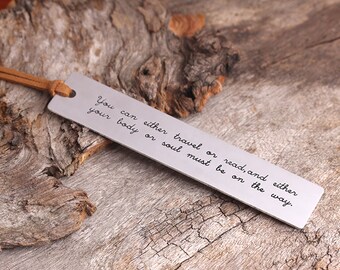 You can either travel or read,and either
your body or soul must be on the way.